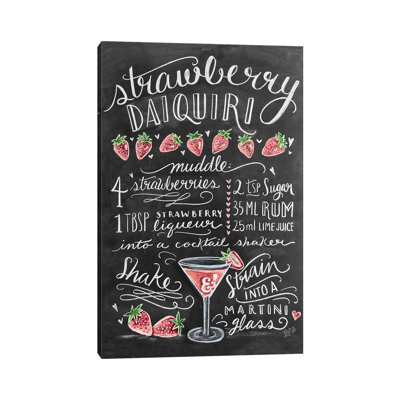 strawberry
DAIQUIRI
muddle:
4 strawberries
1 TBSP STRAWBERRY liqueur
2 TSP Sugar
35 ML RUM
25 ml LIME JUICE
into a cocktail shaker
Shake
&
Strain
INTO A
MARTINI
glass